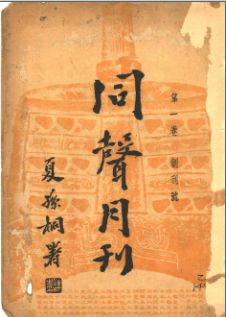 同聲月刊
第一卷 創刊號
夏孫桐署